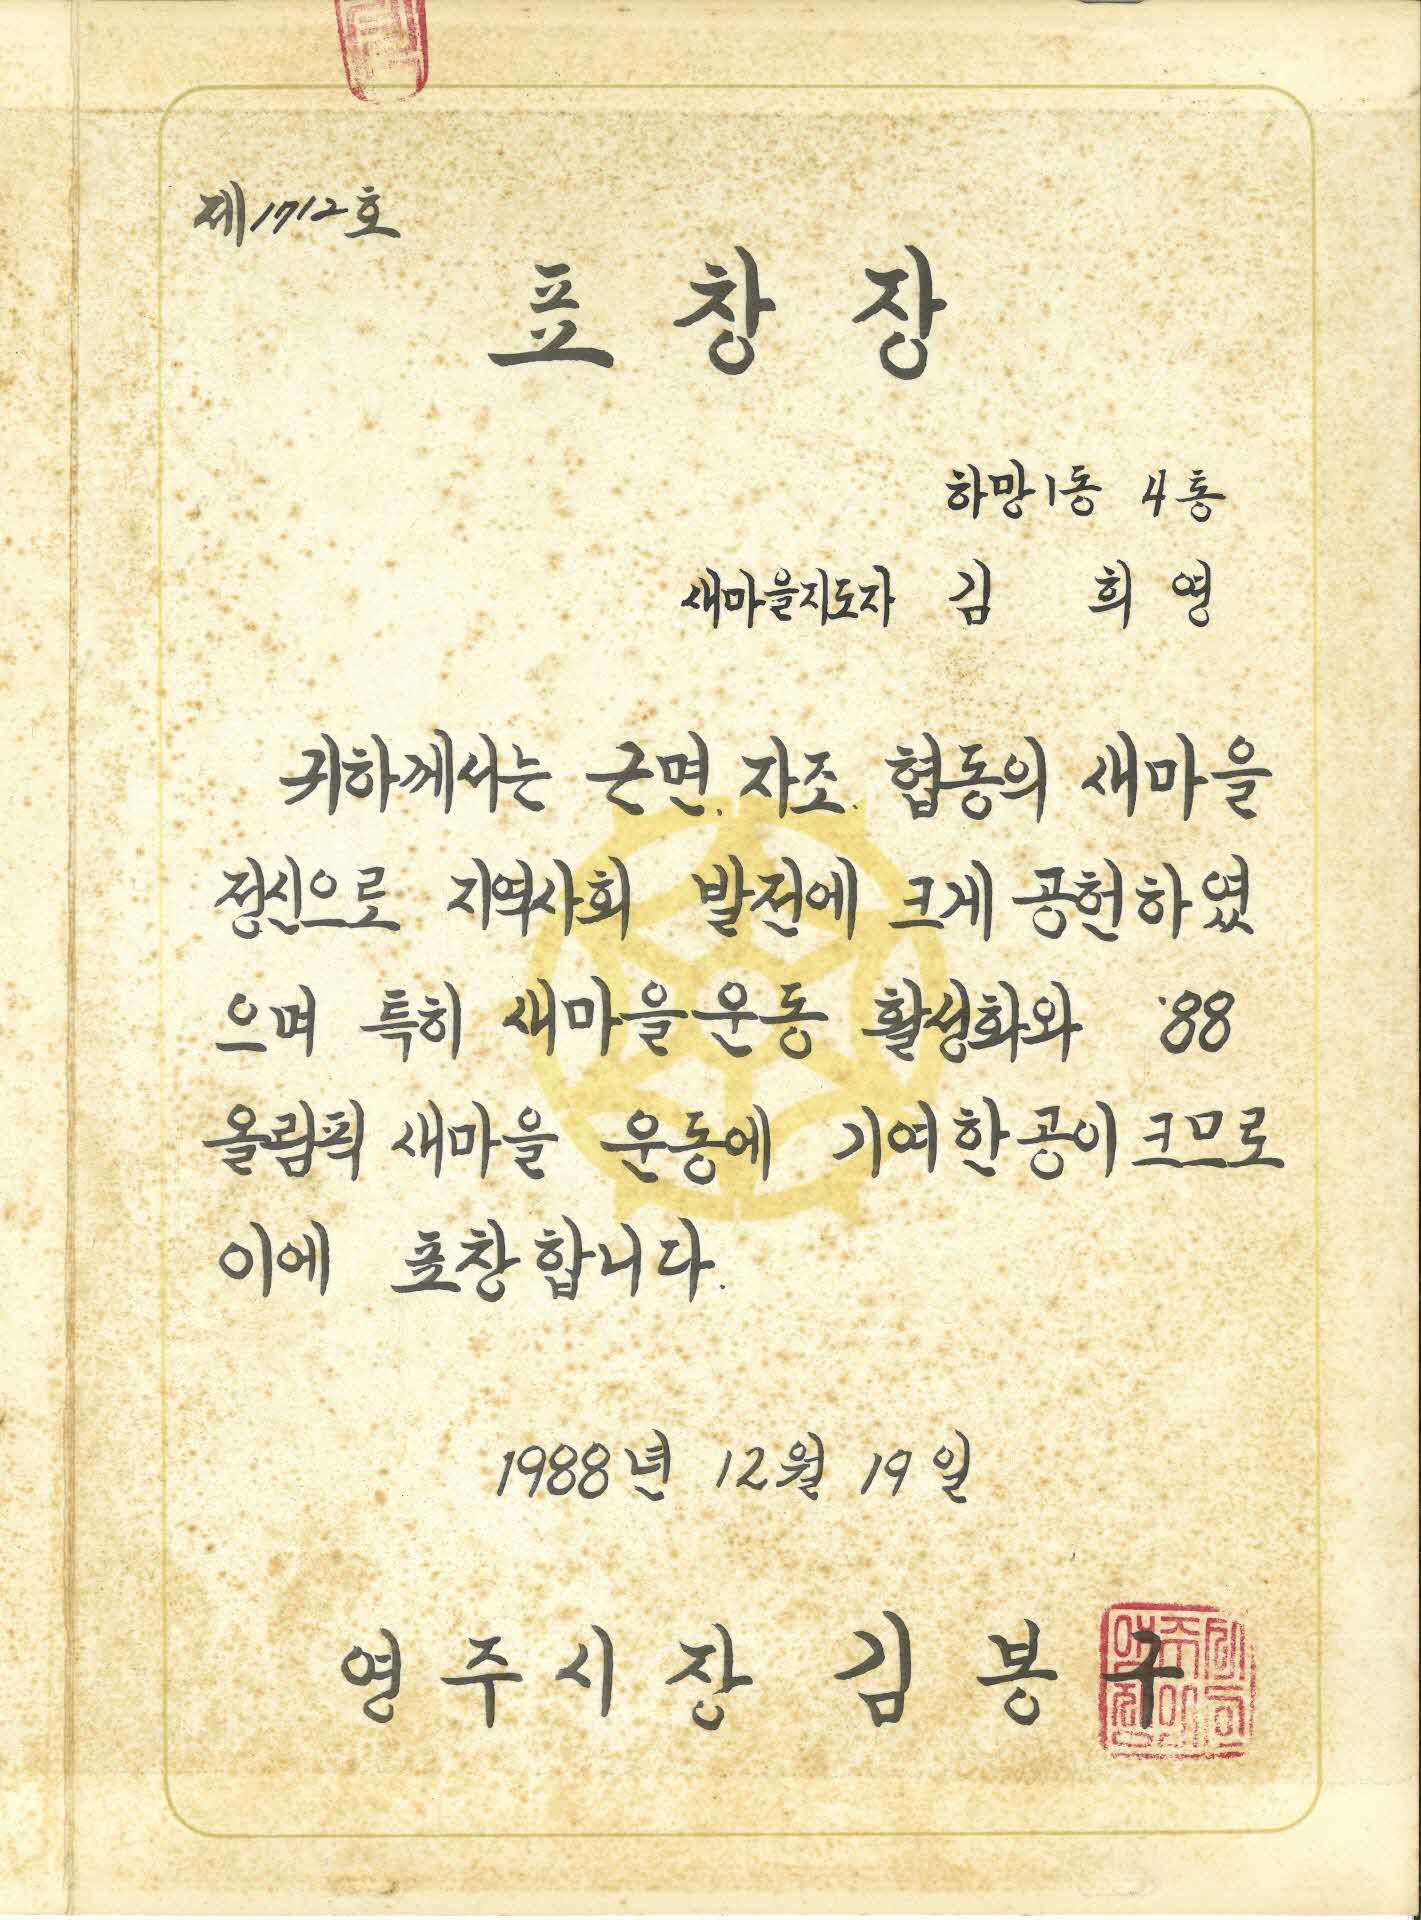 제1712호
표창장
하망1동 4통
새마을지도자 김 희영
귀하께서는 근면. 자조. 협동의 새마을
정신으로 지역사회 발전에 크게 공헌하였
으며 특히 새마을운동 활성화와 '88
올림픽 새마을 운동에 기여한 공이 크므로
이에 표창합니다.
1988년 12월 19일
영주시장 김봉구